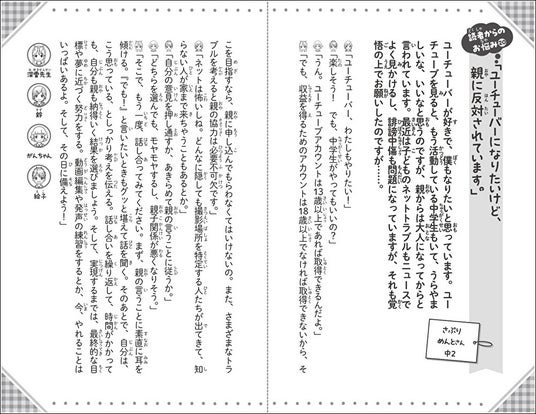 読者からの
お悩み
「ユーチューバーになりたいけど、
親に反対されています。」
ユーチューバーが好きで、僕もなりたいと思っています。ユー
チューブを見ると、もう活動している中学生もいて、うらやま
しいな、いいなと思うのですが、親からは大人になってからと
言われています。最近は子どものネットトラブルもニュースで
よく見かけるし、誹謗中傷も問題になっていますが、それも覚
悟の上でお願いしたのですが……。
さっぷり
めんとさん
中2
「ユーチューバー、わたしもやりたい！」
「楽しそう！ でも、中学生がやってもいいの？」
「うん。ユーチューブアカウントは13歳以上であれば取得できるんだよ。」
「でも、収益を得るためのアカウントは18歳以上でなければ取得できないから、そ
こを目指すなら、親に申し込んでもらわなくてはいけないの。また、さまざまなトラ
ブルを考えると親の協力は必要不可欠です。」
「ネットは怖いしね。どんなに隠しても撮影場所を特定する人たちが出てきて、知
らない人が家まで来ちゃうこともあるとか。」
「自分の意見を押し通すか、あきらめて親の言うことに従うか。」
「どちらを選んでも、モヤモヤするし、親子関係が悪くなりそう。」
「そこで、もう一度、話し合ってみてください。まず、親の言うことに素直に耳を
傾ける。『でも！』と言いたいときもグッと堪えて話を聞く。そのあとで、自分は、
こう思っている、としっかり考えを伝える。話し合いを繰り返して、時間がかかって
も、自分も親も納得いく結果を選びましょう。そして、実現するまでは、最終的な目
標や夢に近づく努力をする。動画編集や発声の練習をするとか、今、やれることは
いっぱいあるよ。そして、その日に備えよう！」
深雪先生
鈴
がんちゃん
絵子